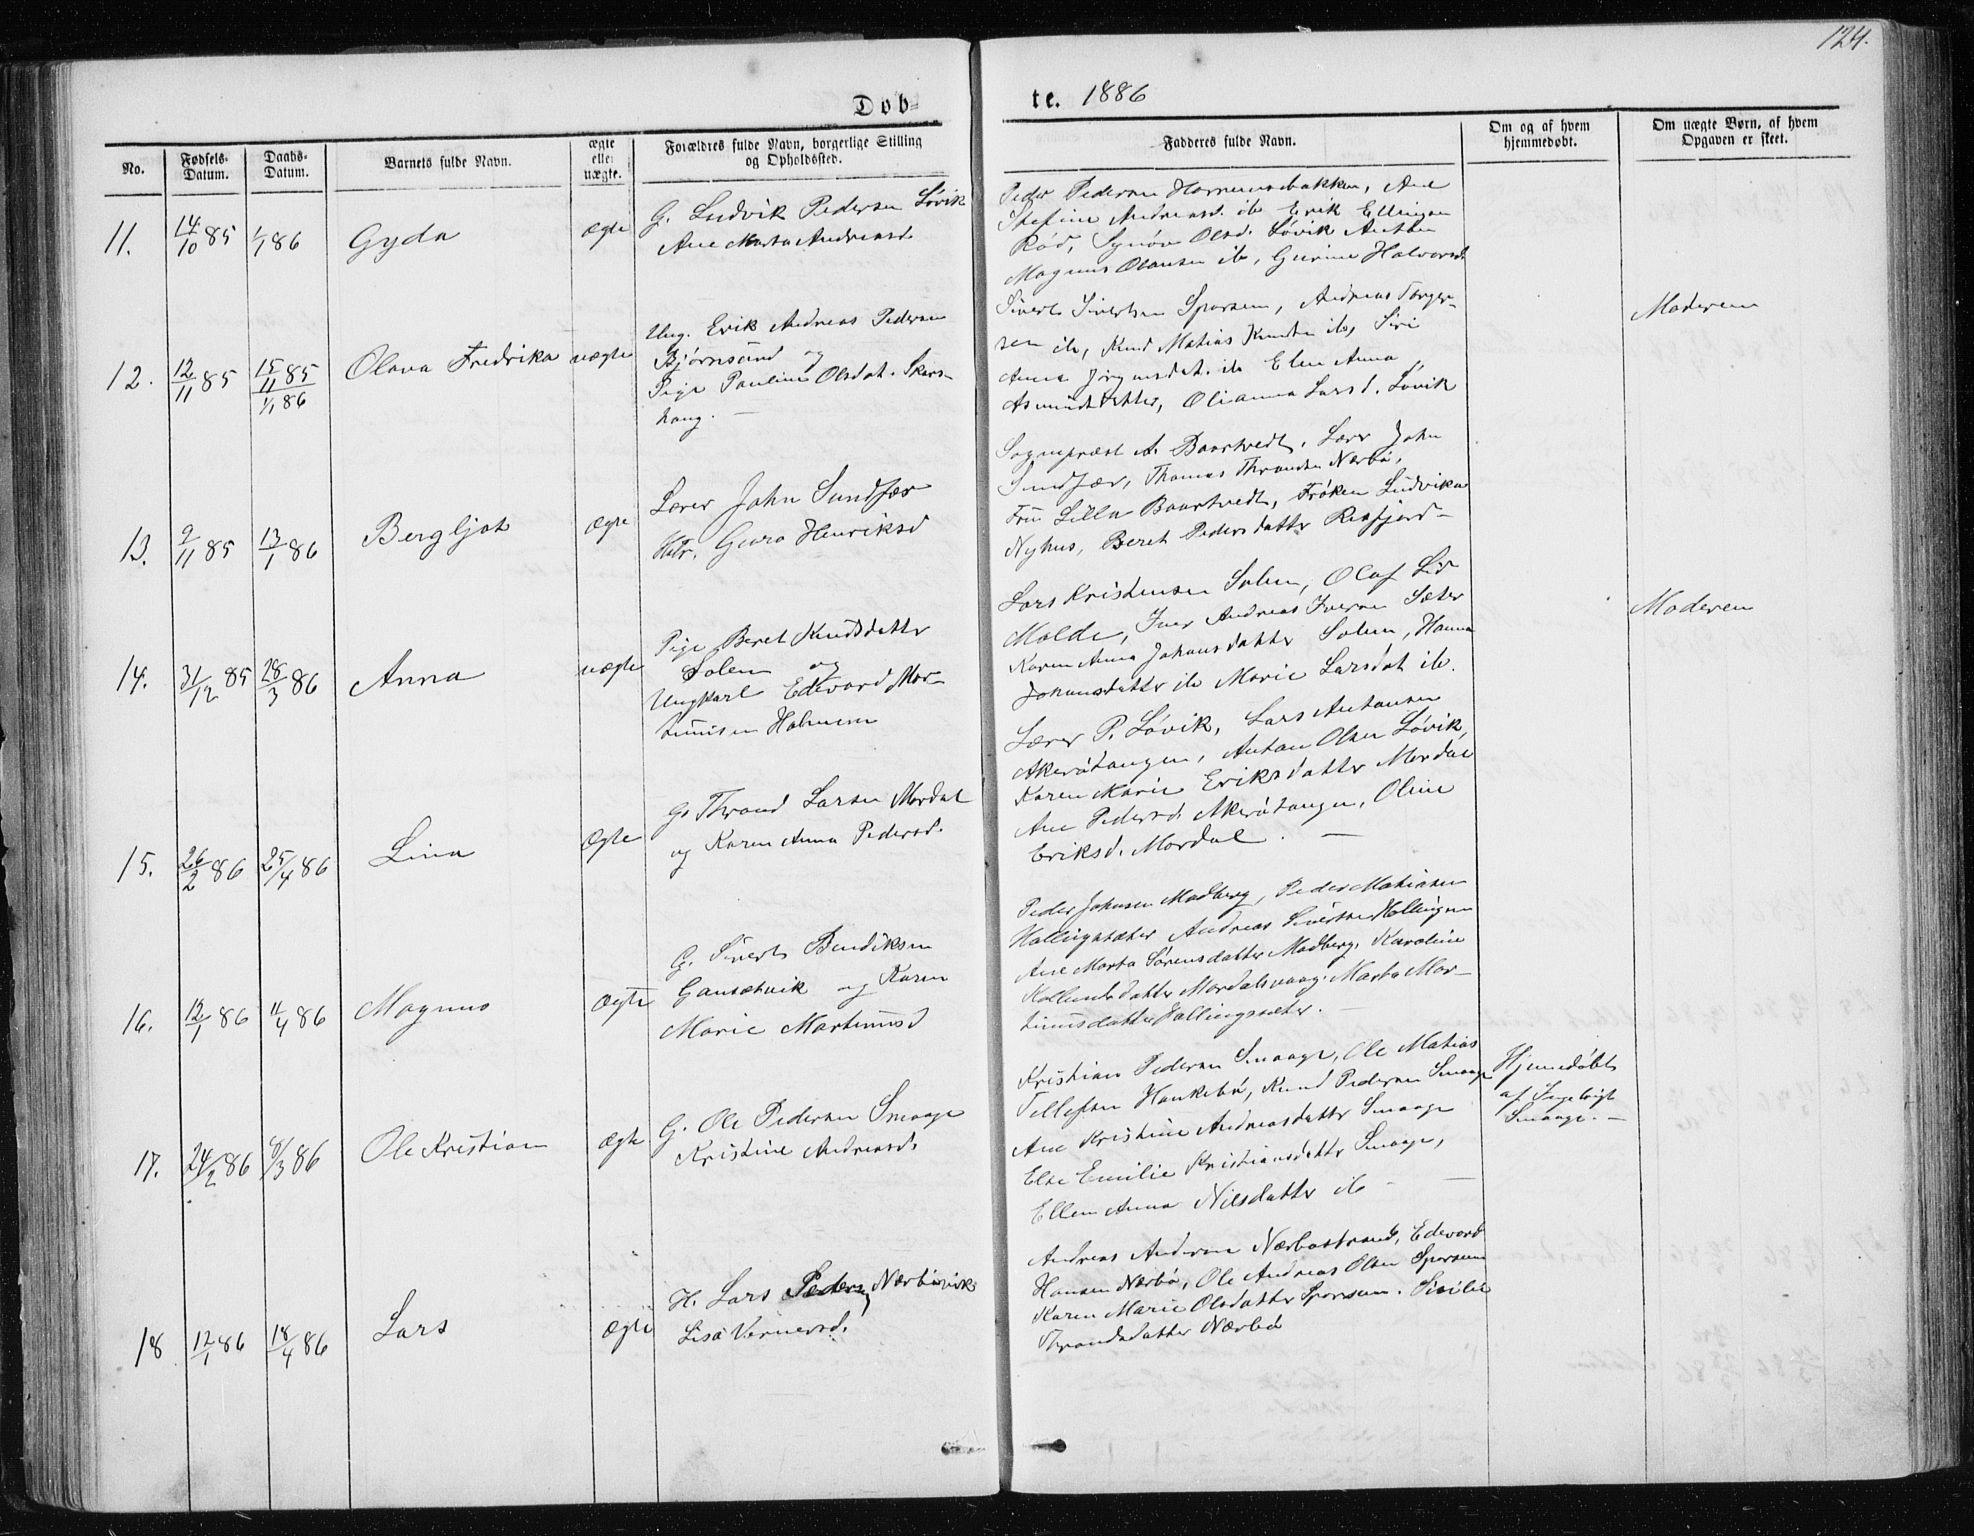 124.
Døbte. 1886
No.
Fødsels-Datum.
Daabs-Datum.
Barnets fulde Navn.
ægte eller uægte.
Forældres fulde Navn, borgerlige Stilling og Opholdssted.
Fadderes fulde Navn.
Om og af hvem hjemmedøbt.
Om uægte Børn, af hvem Opgaven er skeet.
11. 14/10 85 1/1 86 Gyda ægte
G. Ludvik Pedersen Løvik
Ane Marta Andreasd.
Peder Pedersen Harnesbakken, Ane
Stefine Andreasd. ib Erik Ellingsen
Rød, Synøv Olsd. Løvik Anton
Magnus Olausen ib, Gurine Halvorsd.
12. 12/11 85 15/11 85 1/1 86 Olava Fredrika uægte
Ung. Erik Andreas Pedersen
Bjørnsund og
Pige Pauline Olsdat. Skars-
haug.
Sivert Sivertsen Sporsem, Andreas Torger-
sen ib, Knud Matias Knudsen ib, Siri
Anna Jørgensdat. ib Elen Anna
Asmundsdatter, Olianna Larsd. Løvik
Moderen
13. 9/11 85 13/1 86 Bergljot ægte
Lærer John Sundfær
Hstr. Guro Henriksd
Sognepræst A. Baartvedt, Lærer John
Sundfær, Thomas Throndsen Nærbø,
Fru Lilla Baartvedt, Frøken Ludvika
Nyhus, Beret Pedersdatter Roxfjord
14. 31/12 85 28/3 86 Anna uægte
Pige Beret Knudsdatter
Solem og
Ungkarl Edevard Mar-
tinusen Holmem
Lars Kristensen Solem, Olaf Lid
Molde, Iver Andreas Iversen Sæter
Karen Anna Johansdatter Solem, Hanna
Johansdatter ib Marie Larsdat ib.
Moderen
15. 26/2 86 25/4 86 Lina ægte
G. Thrond Larsen Mordal
og Karen Anna Pedersd.
Lærer P. Løvik, Lars Antonsen
Akerøtangen, Anton Olsen Løvik,
Karen Marie Eriksdatter Mordal
Ane Pedersd. Akerøtangen, Oline
Eriksd. Mordal.
16. 12/1 86 11/4 86 Magnus ægte
G. Sivert Bendiksen
Gansetvik og Karen
Marie Martinusd
Peder Johnsen Malberg, Peder Matiasen
Hallingsæter Andreas Sivertsen Hallingsæ
Ane Marta Sørensdatter Malberg, Karoline
Kollundsdatter Mordalsvaag. Marta Mar-
tinusdatter Hallingsæter.
17. 24/2 86 6/3 86 Ole Kristian ægte
G. Ole Pedersen Smaage
Kristine Andreasd.
Kristian Pedersen Smaage, Ole Matias
Tellefsen Haukebø, Knud Pedersen Smaage
Ane Kristine Andreasdatter Smaage
Else Emilie Kristiansdatter Smaage,
Ellen Anna Nilsdatter ib
Hjemmedøbt
af Ingebrigt
Smaage.
18 12/1 86 18/4 86 Lars ægte
H. Lars Peders. Nærbøvik
Lisa Vernersd.
Andreas Andersen Nærbøstrand, Edevard
Hansen Nærbø, Ole Andreas Olsen Sporsem
Karen Marie Olsdatter Sporsem. Sisilie
Throndsdatter Nærbø